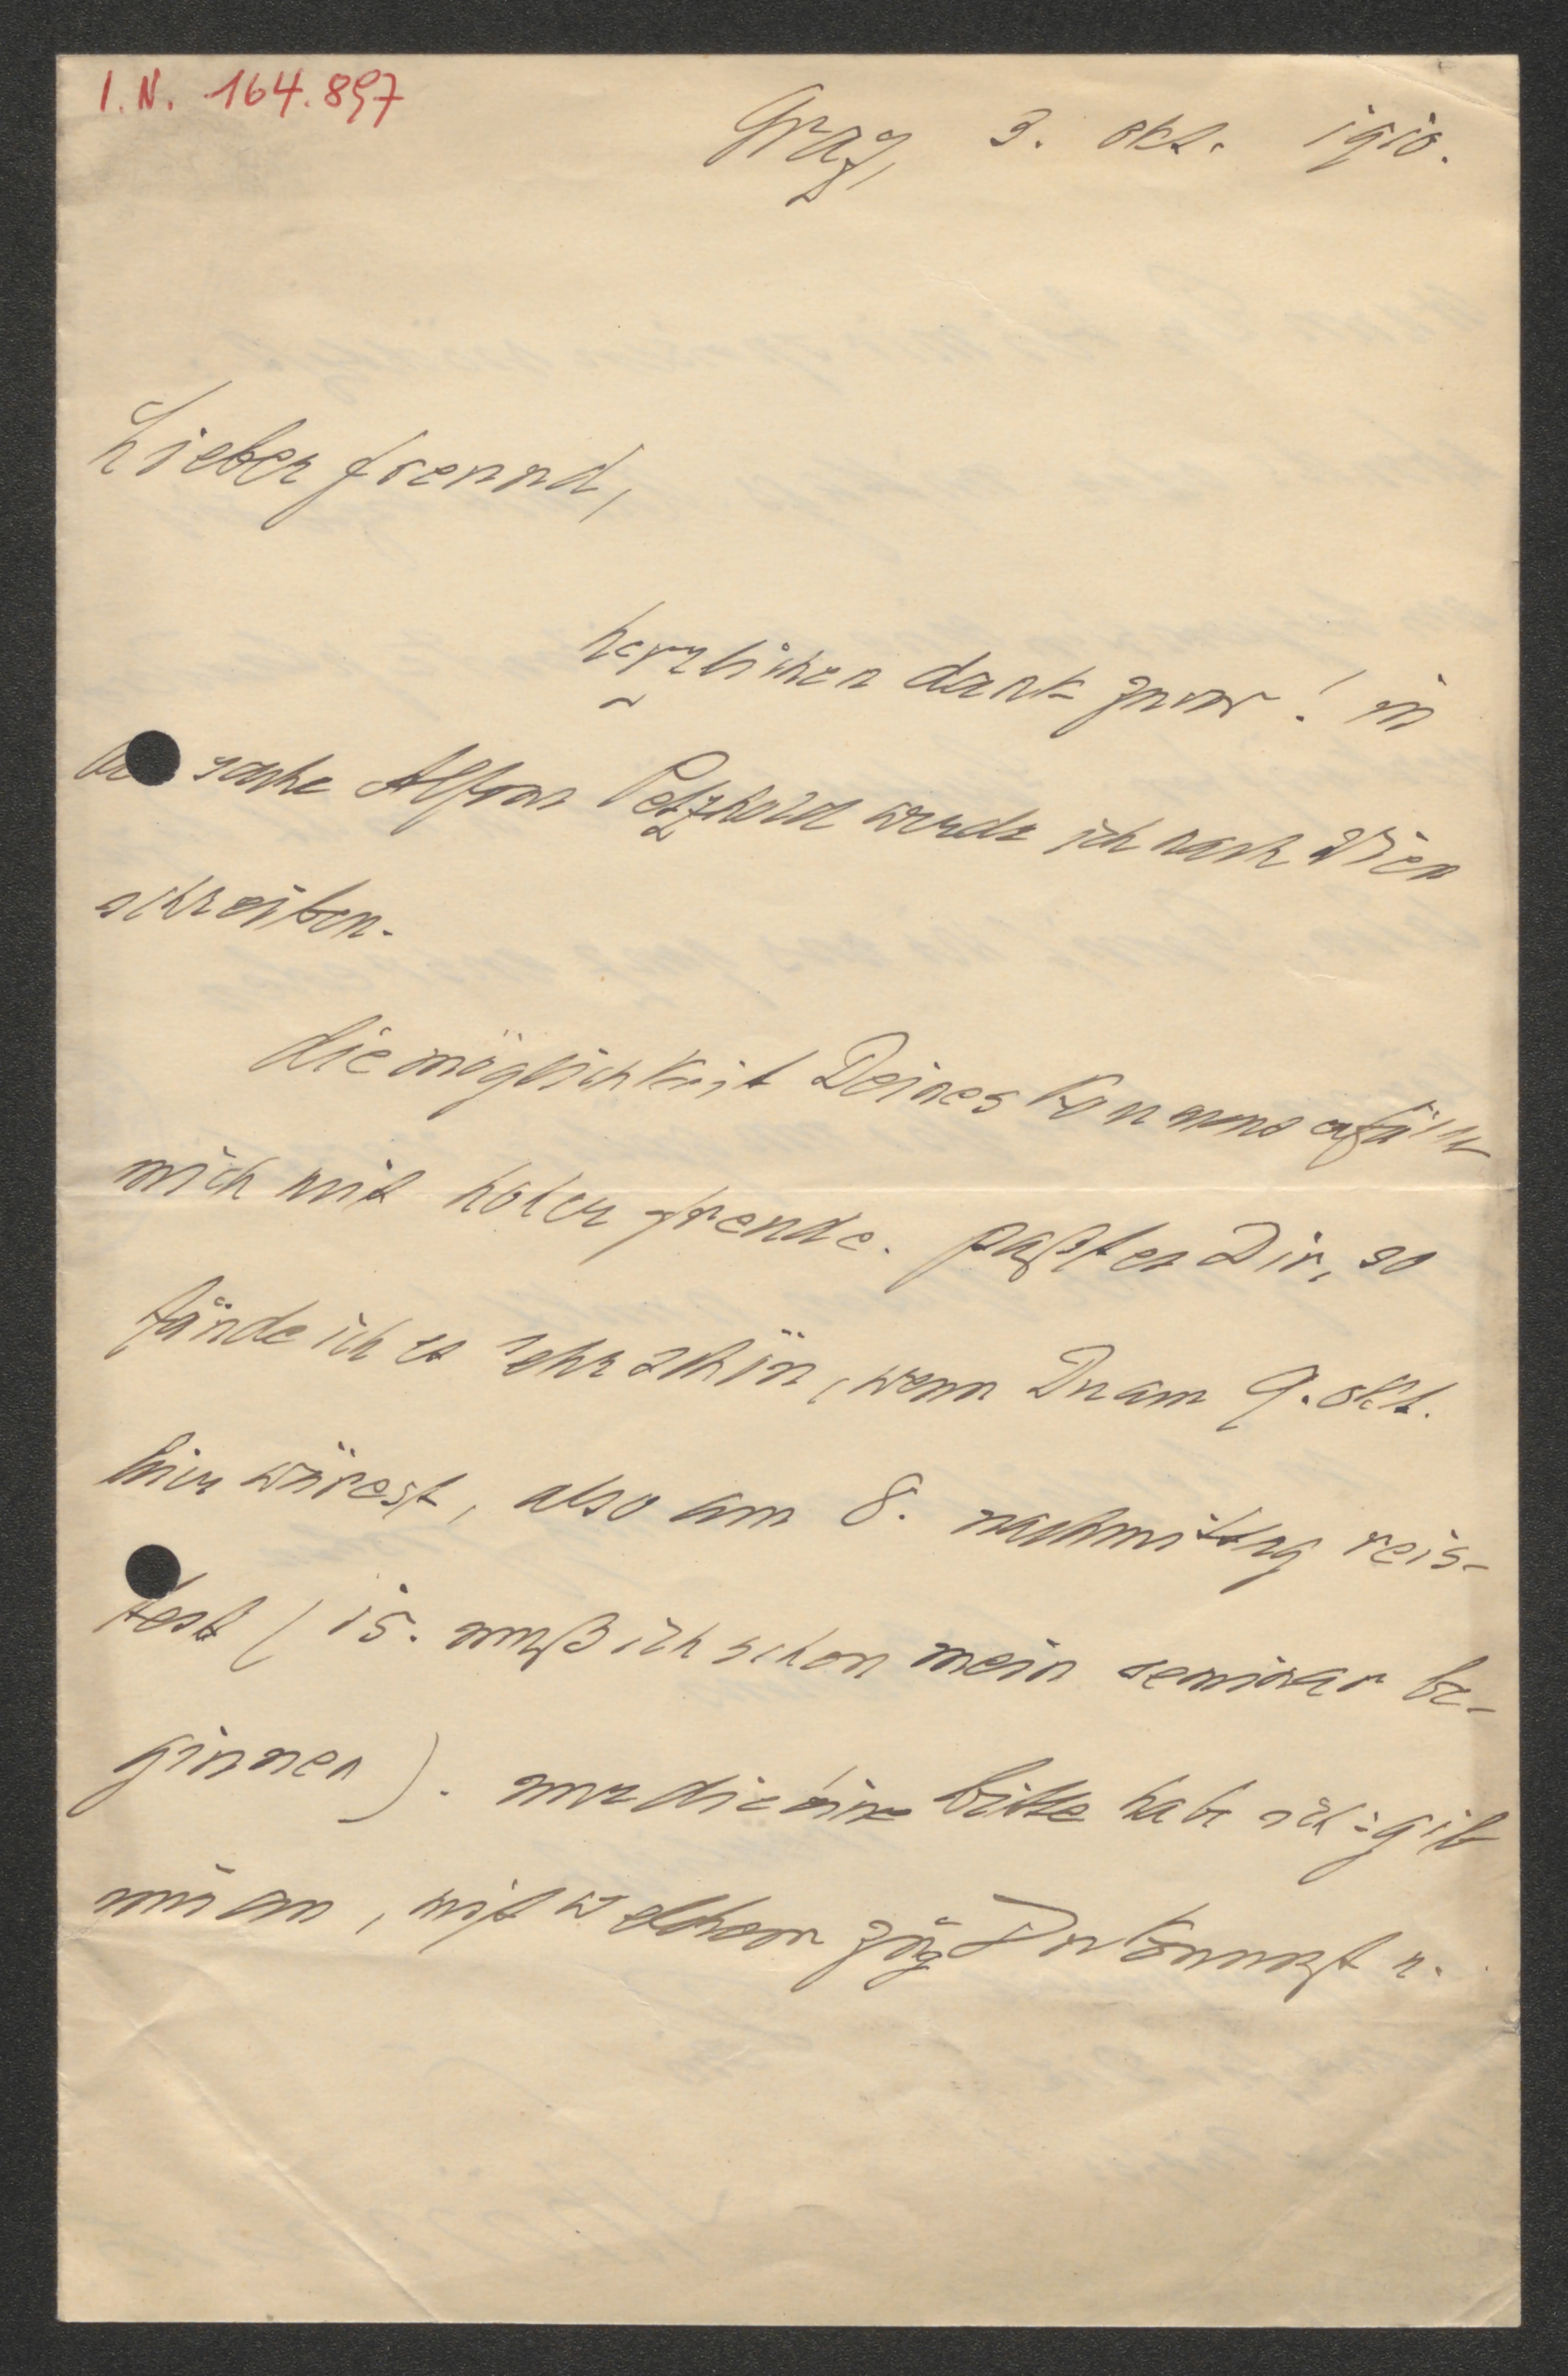 I. N. 164.897
Graz, 3. okt. 1910.
Lieber freund,
herzlichen dank zuvor! in
sache Alfons Petzhold werde ich nach Wien
schreiben.
die möglichkeit Deines kommens erfüllt
mich mit hoher freude. paßt es Dir, so
fände ich es sehr schön, wenn Du am 9. okt.
hier wärest, also am 8. nachmittag reis-
test (15. muß ich schon mein seminar be-
ginnen). nur die eine bitte habe ich: gib
mir an, mit welchem zug Du kommst u.